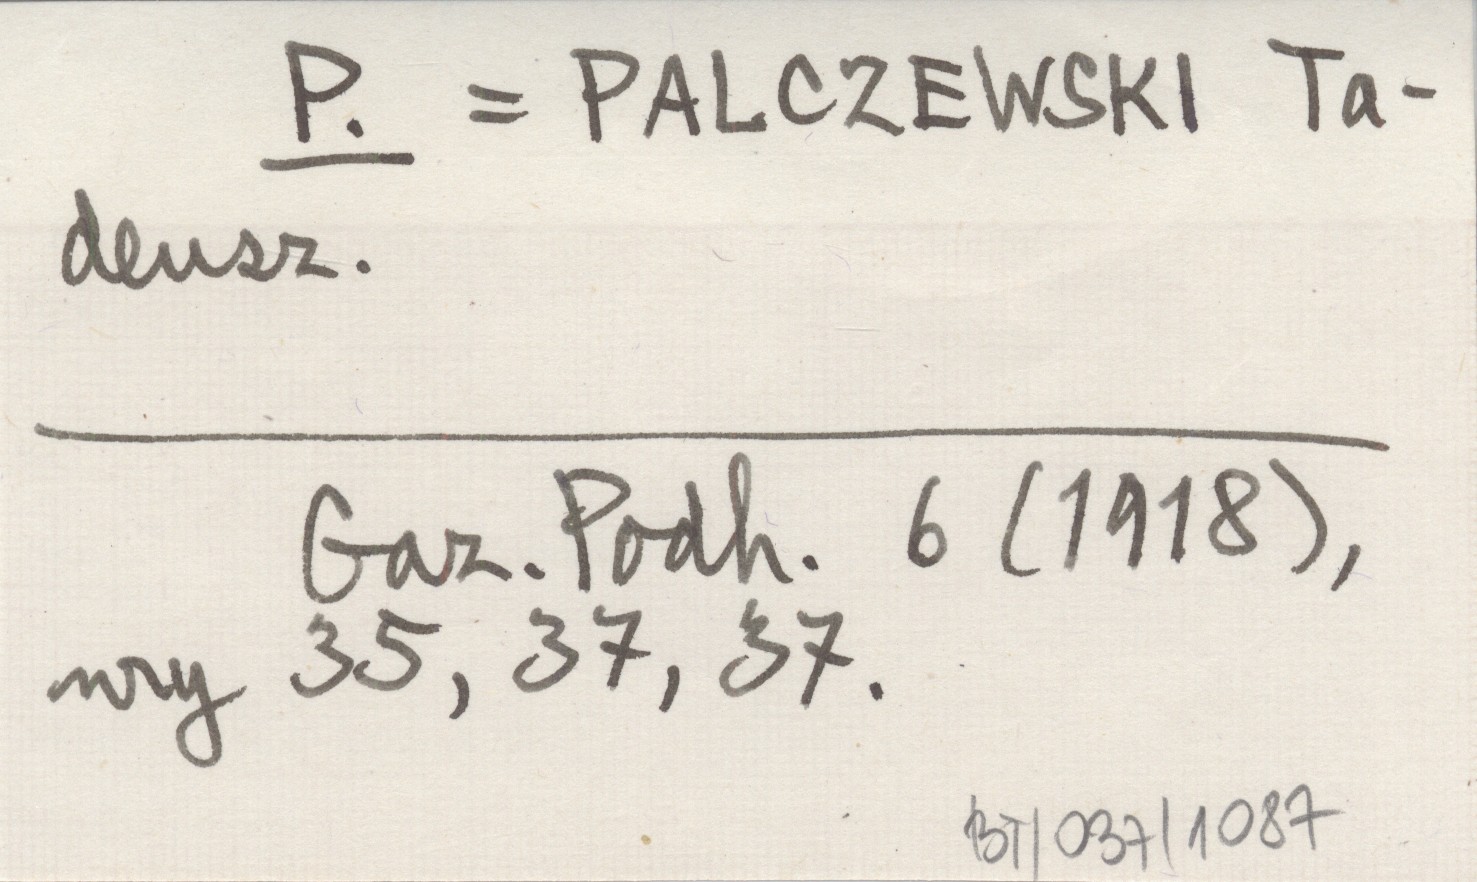 P. = PALCZEWSKI Ta-
deusz.
Gaz. Podh. 6 (1918),
nry 35, 37, 37.
BT/037/1087